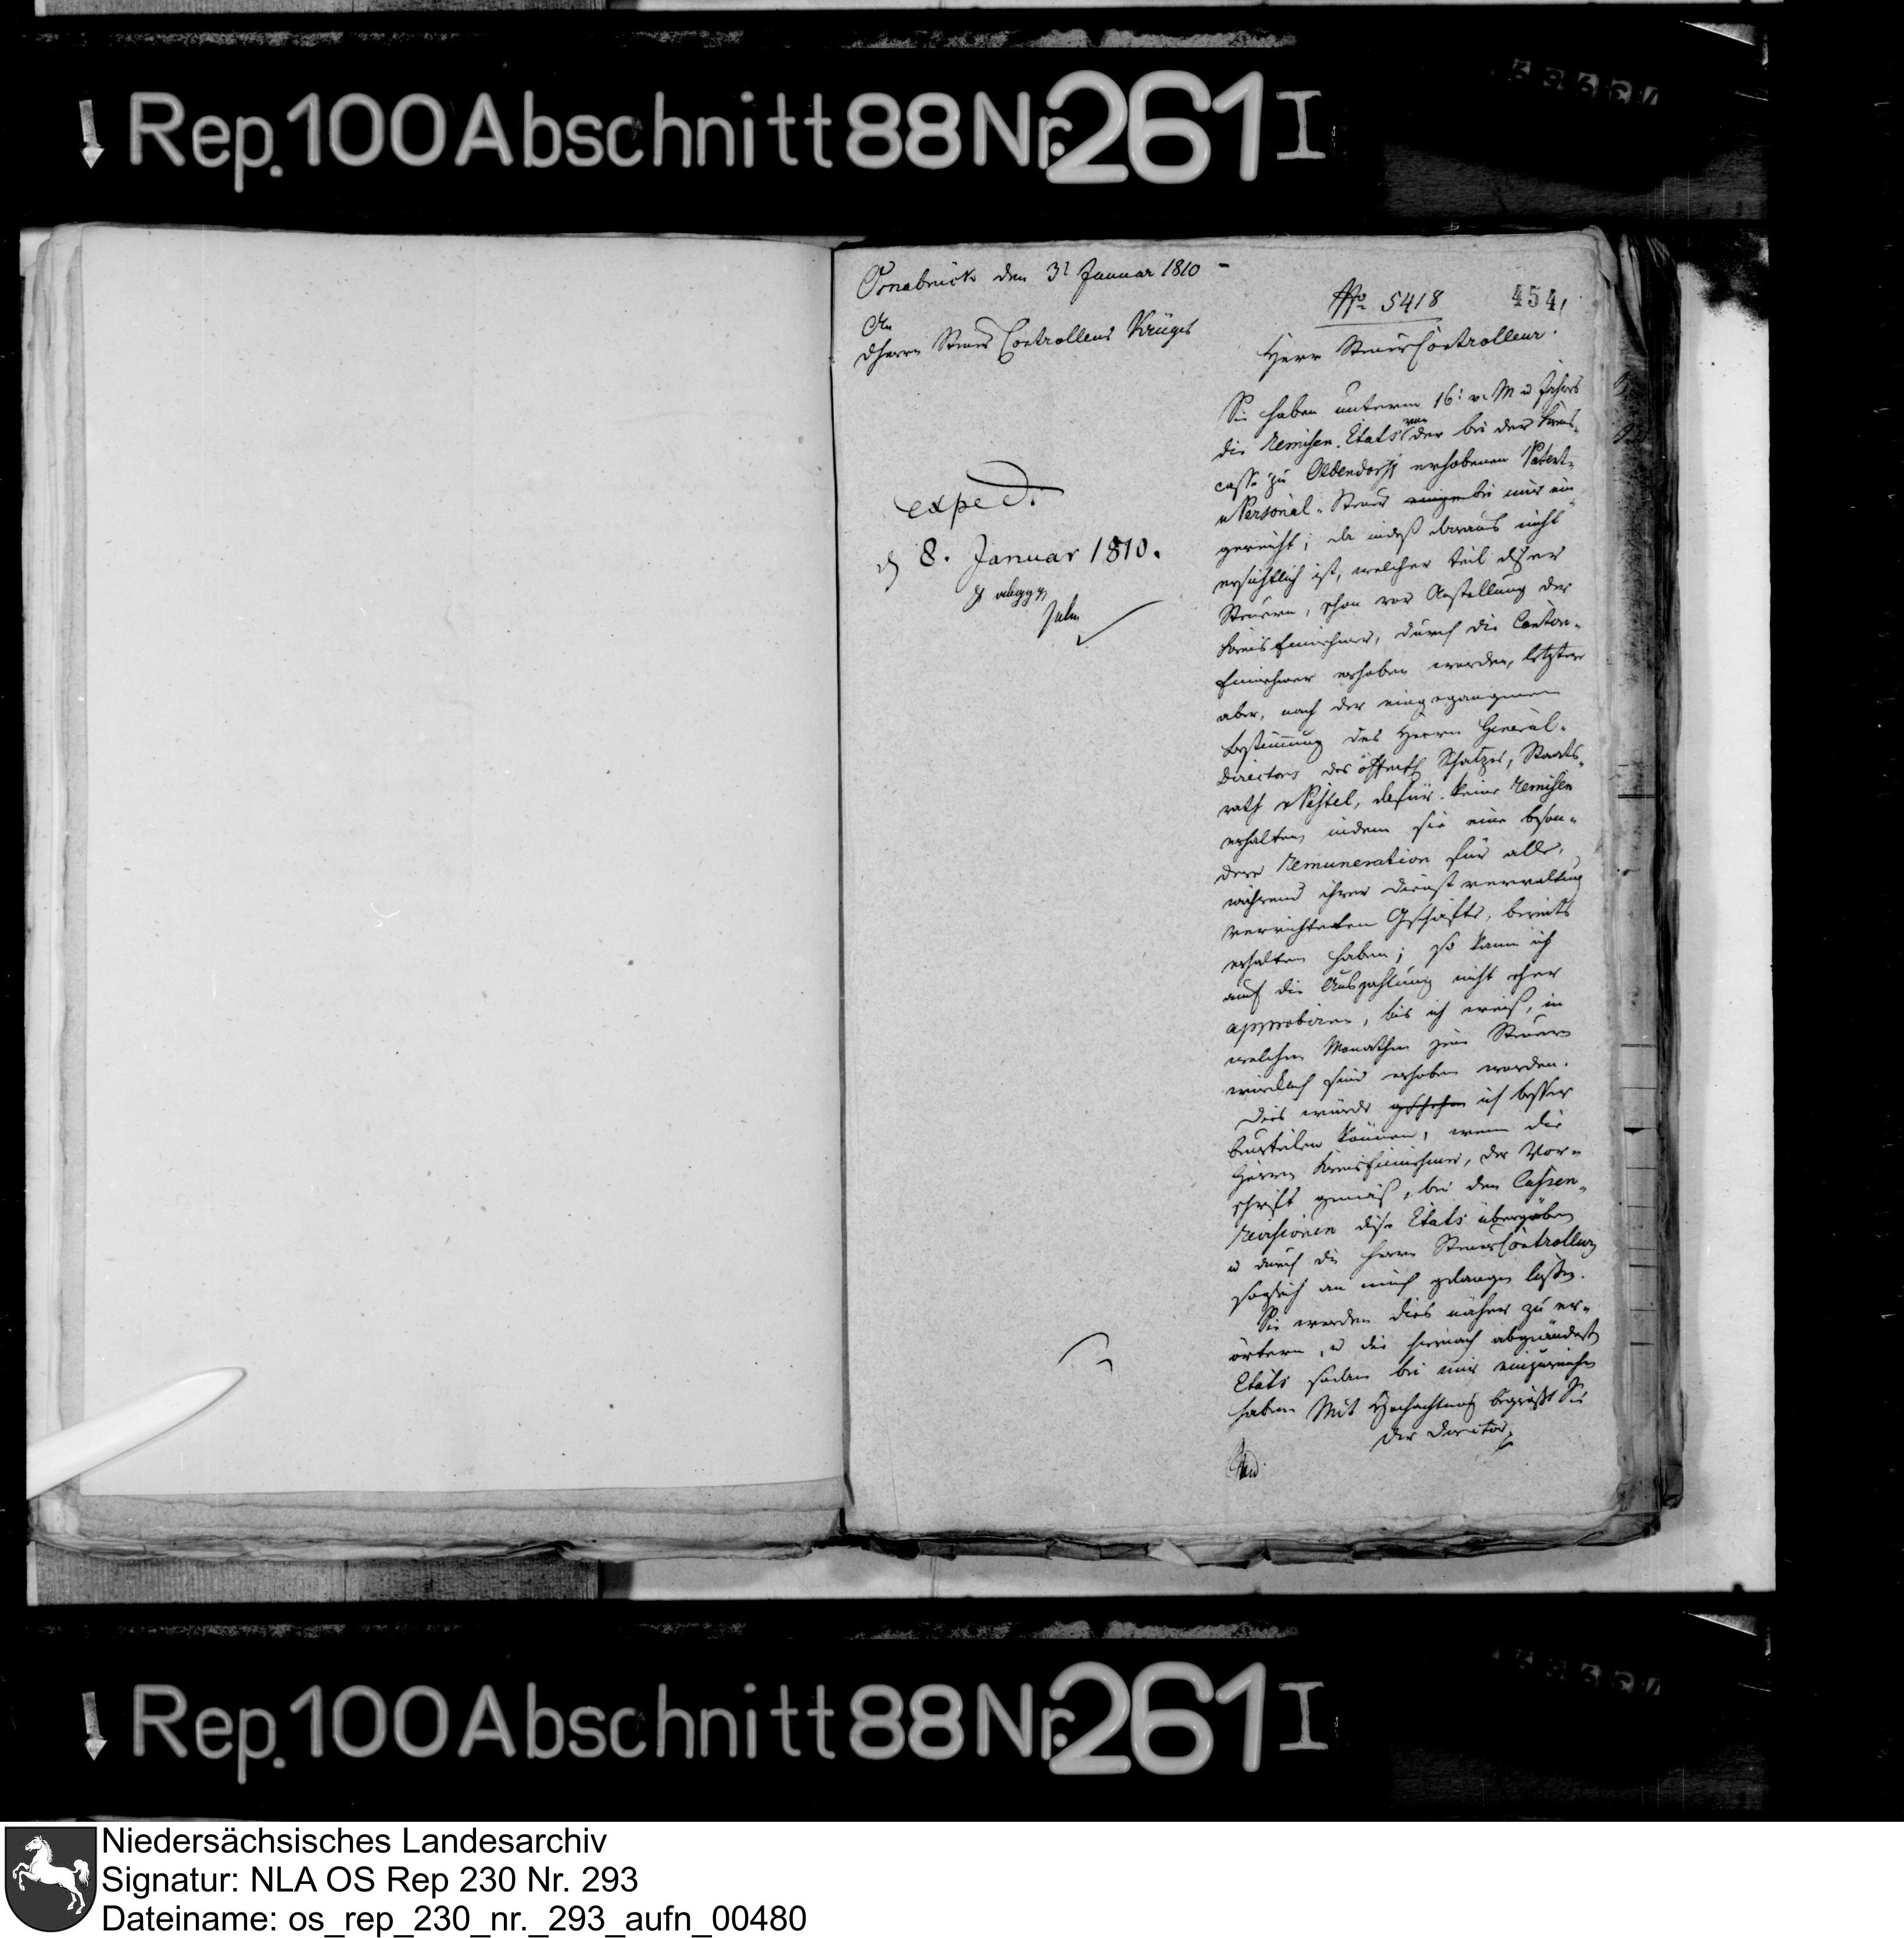 Rep. 100 Abschnitt 88 Nr. 261 I
Osnabrück den 3t Januar 1810 -
An
Herrn Steuer Controlleur Krüger
exped.
d 8. Januar 1810.
No 5418
454,
Herr SteuerControlleur.
Sie haben unterm 16t v. M u Jahrs
die Remisen-Etats von der bei der Kreis-
casse zu Oldendorff erhobenen Patent-
u Personal-Steuer bei mir ein-
gereicht; da indeß daraus nicht
ersichtlich ist, welcher Teil dieser
Steuern, schon vor Anstellung der
KreisEinnehmer, durch die Canton-
Einnehmer erhoben worden, letztere
aber, nach der eingegangenen
Bestimmung des Herrn General-
Directors des öffentl Schatzes, Staats-
rath v Pestel, dafür keine Remisen
erhalten indem sie eine beson-
dere Remuneration für alle,
während ihrer Dienstverwaltung
verrichteten Geschäfte, bereits
erhalten haben; so kann ich
auf die Auszahlung nicht eher
approbiren, bis ich weiß, in
welchen Monathen jene Steuern
wirklich sind erhoben worden.
Dies würde geschehen ich besser
beurteilen können, wenn die
Herren KreisEinnehmer, der Vor-
schrift gemäß, bei den Cassen-
Revisionen diese Etats übergäben
u durch die Herrn SteuerControlleurs
sogleich an mich gelangen ließen.
Sie werden dies näher zu er-
örtern, u die hiernach abgeändert
Etats sodan bei mir einzureichen
haben Mit Hochachtung begrüßt Sie
der Director
Rep. 100 Abschnitt 88 Nr. 261 I
Niedersächsisches Landesarchiv
Signatur: NLA OS Rep 230 Nr. 293
Dateiname: os_rep_230_nr._293_aufn_00480